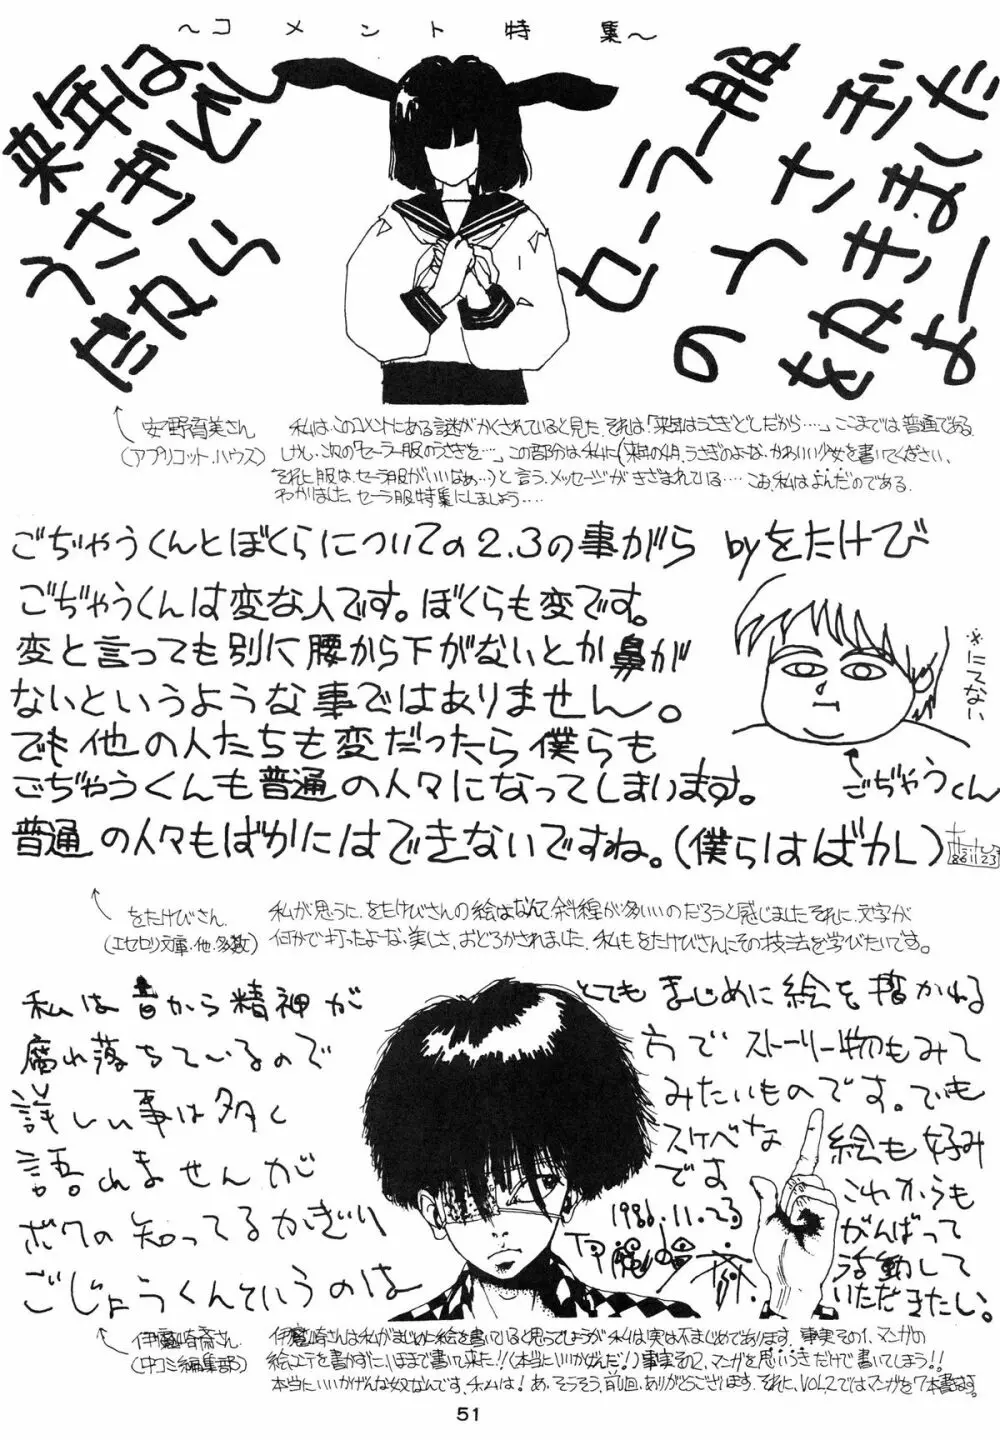 ～コメント特集～
来年は
うさぎどし
だから
セーラー服
のうさぎ
をかきましただ
よー
安野育美さん
(アプリコット・ハウス)
私は、このコメントにある謎がかくされていると見た。それは「来年はうさぎどしだから…。」ここまでは普通である。
しかし、次の「セーラー服のうさぎを…」この部分は、私に(来年の4月、うさぎのよーな、かわいい少女を書いてください、
それに服は、セーラ服がいいなぁ…)と言う、メッセージがきざまれている…。こお、私はよんだのである。
わかりました、セーラ服特集にしましょう…。
ごぢゃうくんとぼくらについての2、3の事がら byをたけび
ごぢゃうくんは変な人です。ぼくらも変です。
変と言っても別に腰から下がないとか鼻が
ないというような事ではありません。
でも他の人たちも変だったら僕らも
ごぢゃうくんも普通の人々になってしまいます。
普通の人々もばかにはできないですね。(僕らはばカレ)
86 11 23
※にてない
ごぢゃうくん
をたけびさん
(エセセリ文庫・他・多数)
私が思うに、をたけびさんの絵はなんて斜線が多いいのだろうと感じました。それに、文字が
何かで打ったよーな、美しさ、おどろかされました。私もをたけびさんにその技法を学びたいです。
私は昔から精神が
腐れ落ちているので
詳しい事は多く
語れませんが
ボクの知ってるかぎり
ごじょうくんていうのは
とてもまじめに絵を描かれる
方でストーリー物もみて
みたいものです。でも
スケベな絵も好み
では
これからも
がんばって
活動して
いただきたい。
1986.11.23
伊魔崎斎さん
(中コミ編集部)
伊魔崎さんは私がまじめに絵を書いていると思ってしょうが、私は実は不まじめであります。事実その1、マンガの
絵コンテを書かずに、いままで書いて来た!!(本当にいいかげんだ!)事実その2、マンガを思いつきだけで書いてしまう!!
本当にいいかげんな奴なんです、私ムは!あ、そうそう、前回、ありがとうございます。それに、VOL.2ではマンガを7本書きます。
51